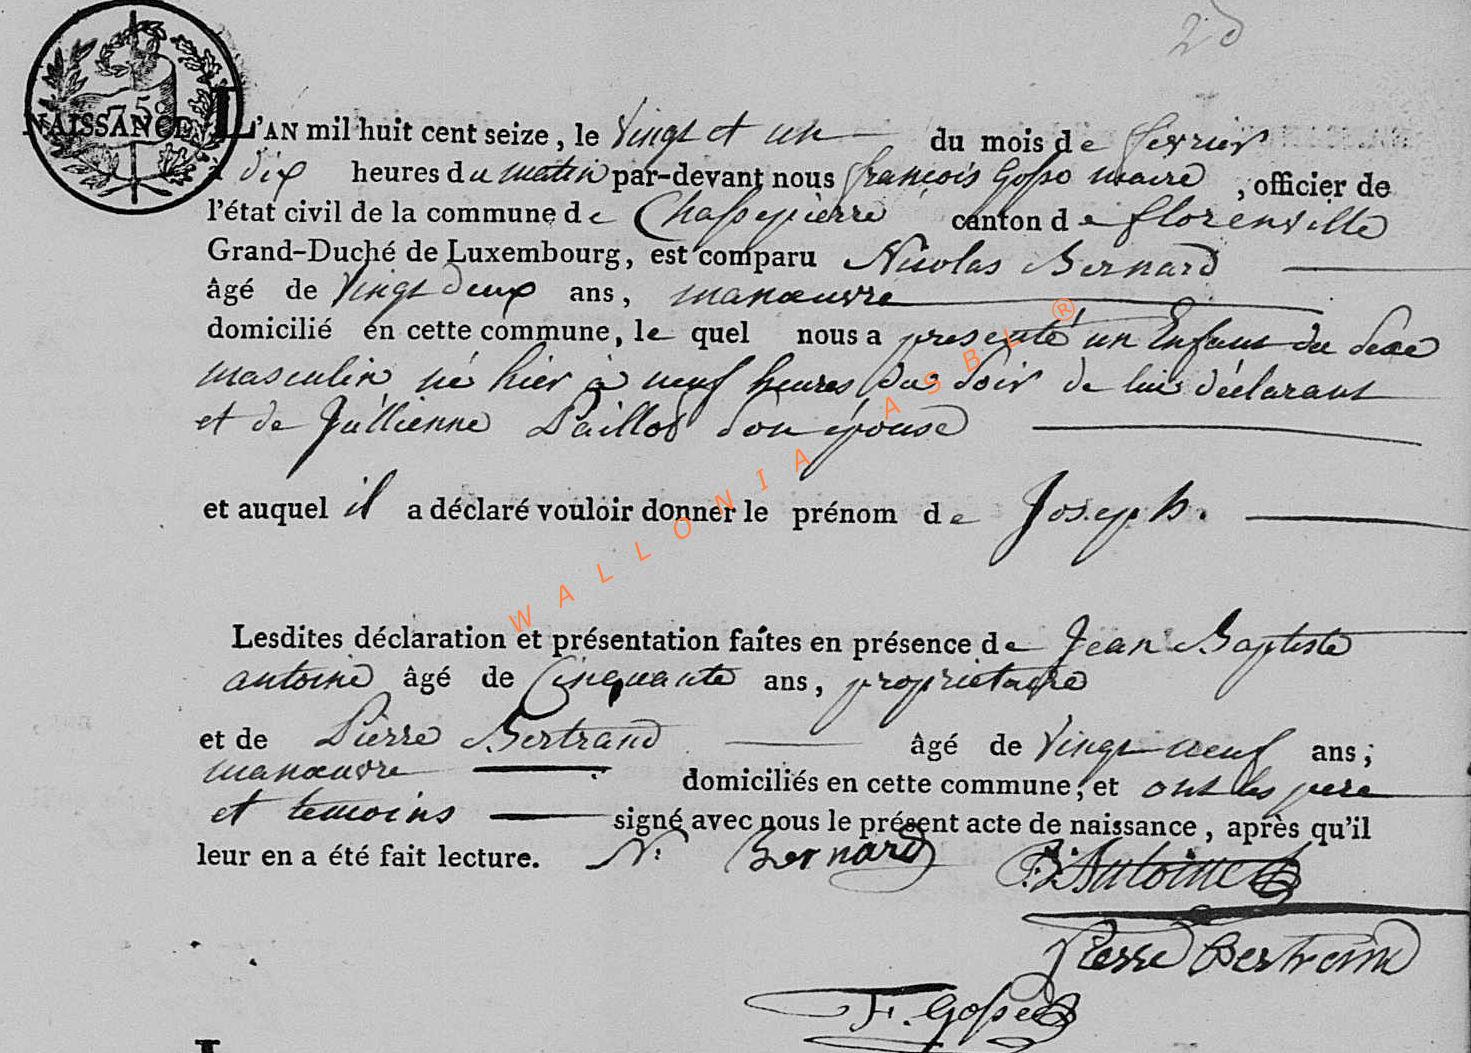 25
75 c
NAISSANCE
L'AN mil huit cent seize, le vingt et un du mois de fevrier
à dix heures du matin par-devant nous françois Gosse maire, officier de
l'état civil de la commune de Chassepierre canton de florenville
Grand-Duché de Luxembourg, est comparu Nicolas Bernard
âgé de vingt deux ans, manœuvre
domicilié en cette commune, le quel nous a presenté un Enfant du sexe
masculin né hier à neuf heures du soir de lui déclarant
et de Jullienne Paillot son épouse
et auquel il a déclaré vouloir donner le prénom de Joseph.
Lesdites déclaration et présentation faites en présence de Jean Baptiste
antoine âgé de Cinquante ans, propriétaire
et de Pierre Bertrand âgé de vingt neuf ans;
manœuvre domiciliés en cette commune, et ont les pere
et temoins signé avec nous le présent acte de naissance, après qu'il
leur en a été fait lecture. N: Bernard Antoine
Pierre Bertrand
F. Gosse
WALLONIA ASBL ®